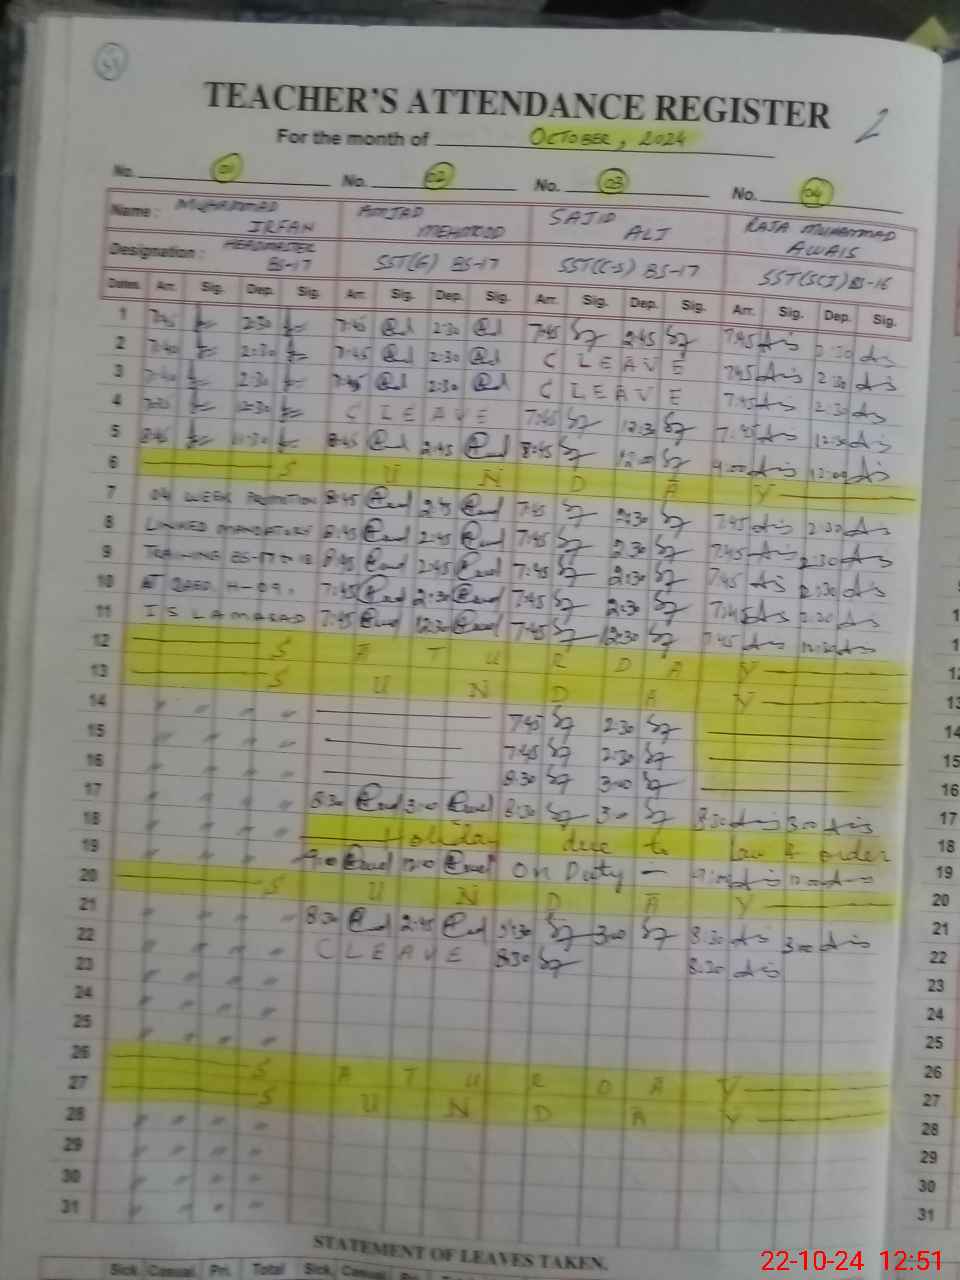 TEACHER'S ATTENDANCE REGISTER 2
For the month of OCTOBER, 2024
No. 01 No. 02 No. 03 No. 04
Name: MUHAMMAD IRFAN AMJAD MEHMOOD SAJID ALI RAJA MUHAMMAD AWAIS
Designation: HEADMASTER BS-17 SST(G) BS-17 SST(C-S) BS-17 SST(SCI) BS-16
Dates Arr. Sig. Dep. Sig. Arr. Sig. Dep. Sig. Arr. Sig. Dep. Sig. Arr. Sig. Dep. Sig.
1 7:45 2:30 7:45 2:30 7:45 2:45 7:45 2:30
2 7:40 2:30 7:45 2:30 C LEAVE 7:45 2:30
3 7:40 2:30 7:45 2:30 C LEAVE 7:45 2:30
4 12:30 C LEAVE 7:45 12:30 7:45 12:30
5 8:45 8:45 2:45 8:45 12:00 9:00 12:00
6 SUNDAY
7 04 WEEK PROMOTION 8:45 2:45 7:45 2:30 7:45 2:30
8 LINKED MANDATORY 8:45 2:45 7:45 2:30 7:45 2:30
9 TRAINING BS-17 TO 18 8:45 2:45 7:45 2:30 7:45 2:30
10 AT H-09, 7:45 2:30 7:45 2:30 7:45 2:30
11 ISLAMABAD 7:45 12:30 7:45 12:30 7:45 12:30
12 SATURDAY
13 SUNDAY
14 " " " " 7:45 2:30
15 " " " " 7:45 2:30
16 " " " " 8:30 3:00
17 " " " " 8:30 3:00 8:30 3:00 8:30 3:00
18 " " " " Holiday due to law & order
19 " " " " 9:00 12:00 On Duty – 9:00 12:00
20 SUNDAY
21 " " " " 8:30 2:45 8:30 3:00 8:30 3:00
22 " " " " C LEAVE 8:30 8:30
23 " " " "
24 " " " "
25 " " " "
26 SATURDAY
27 SUNDAY
28 " " " "
29 " " " "
30 " " " "
31 " " " "
STATEMENT OF LEAVES TAKEN.
Sick Casual Pri. Total Sick Casual
22-10-24 12:51